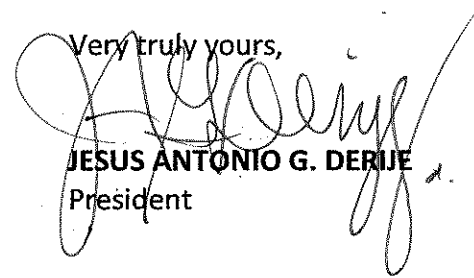 Very truly yours,
JESUS ANTONIO G. DERIJE
President